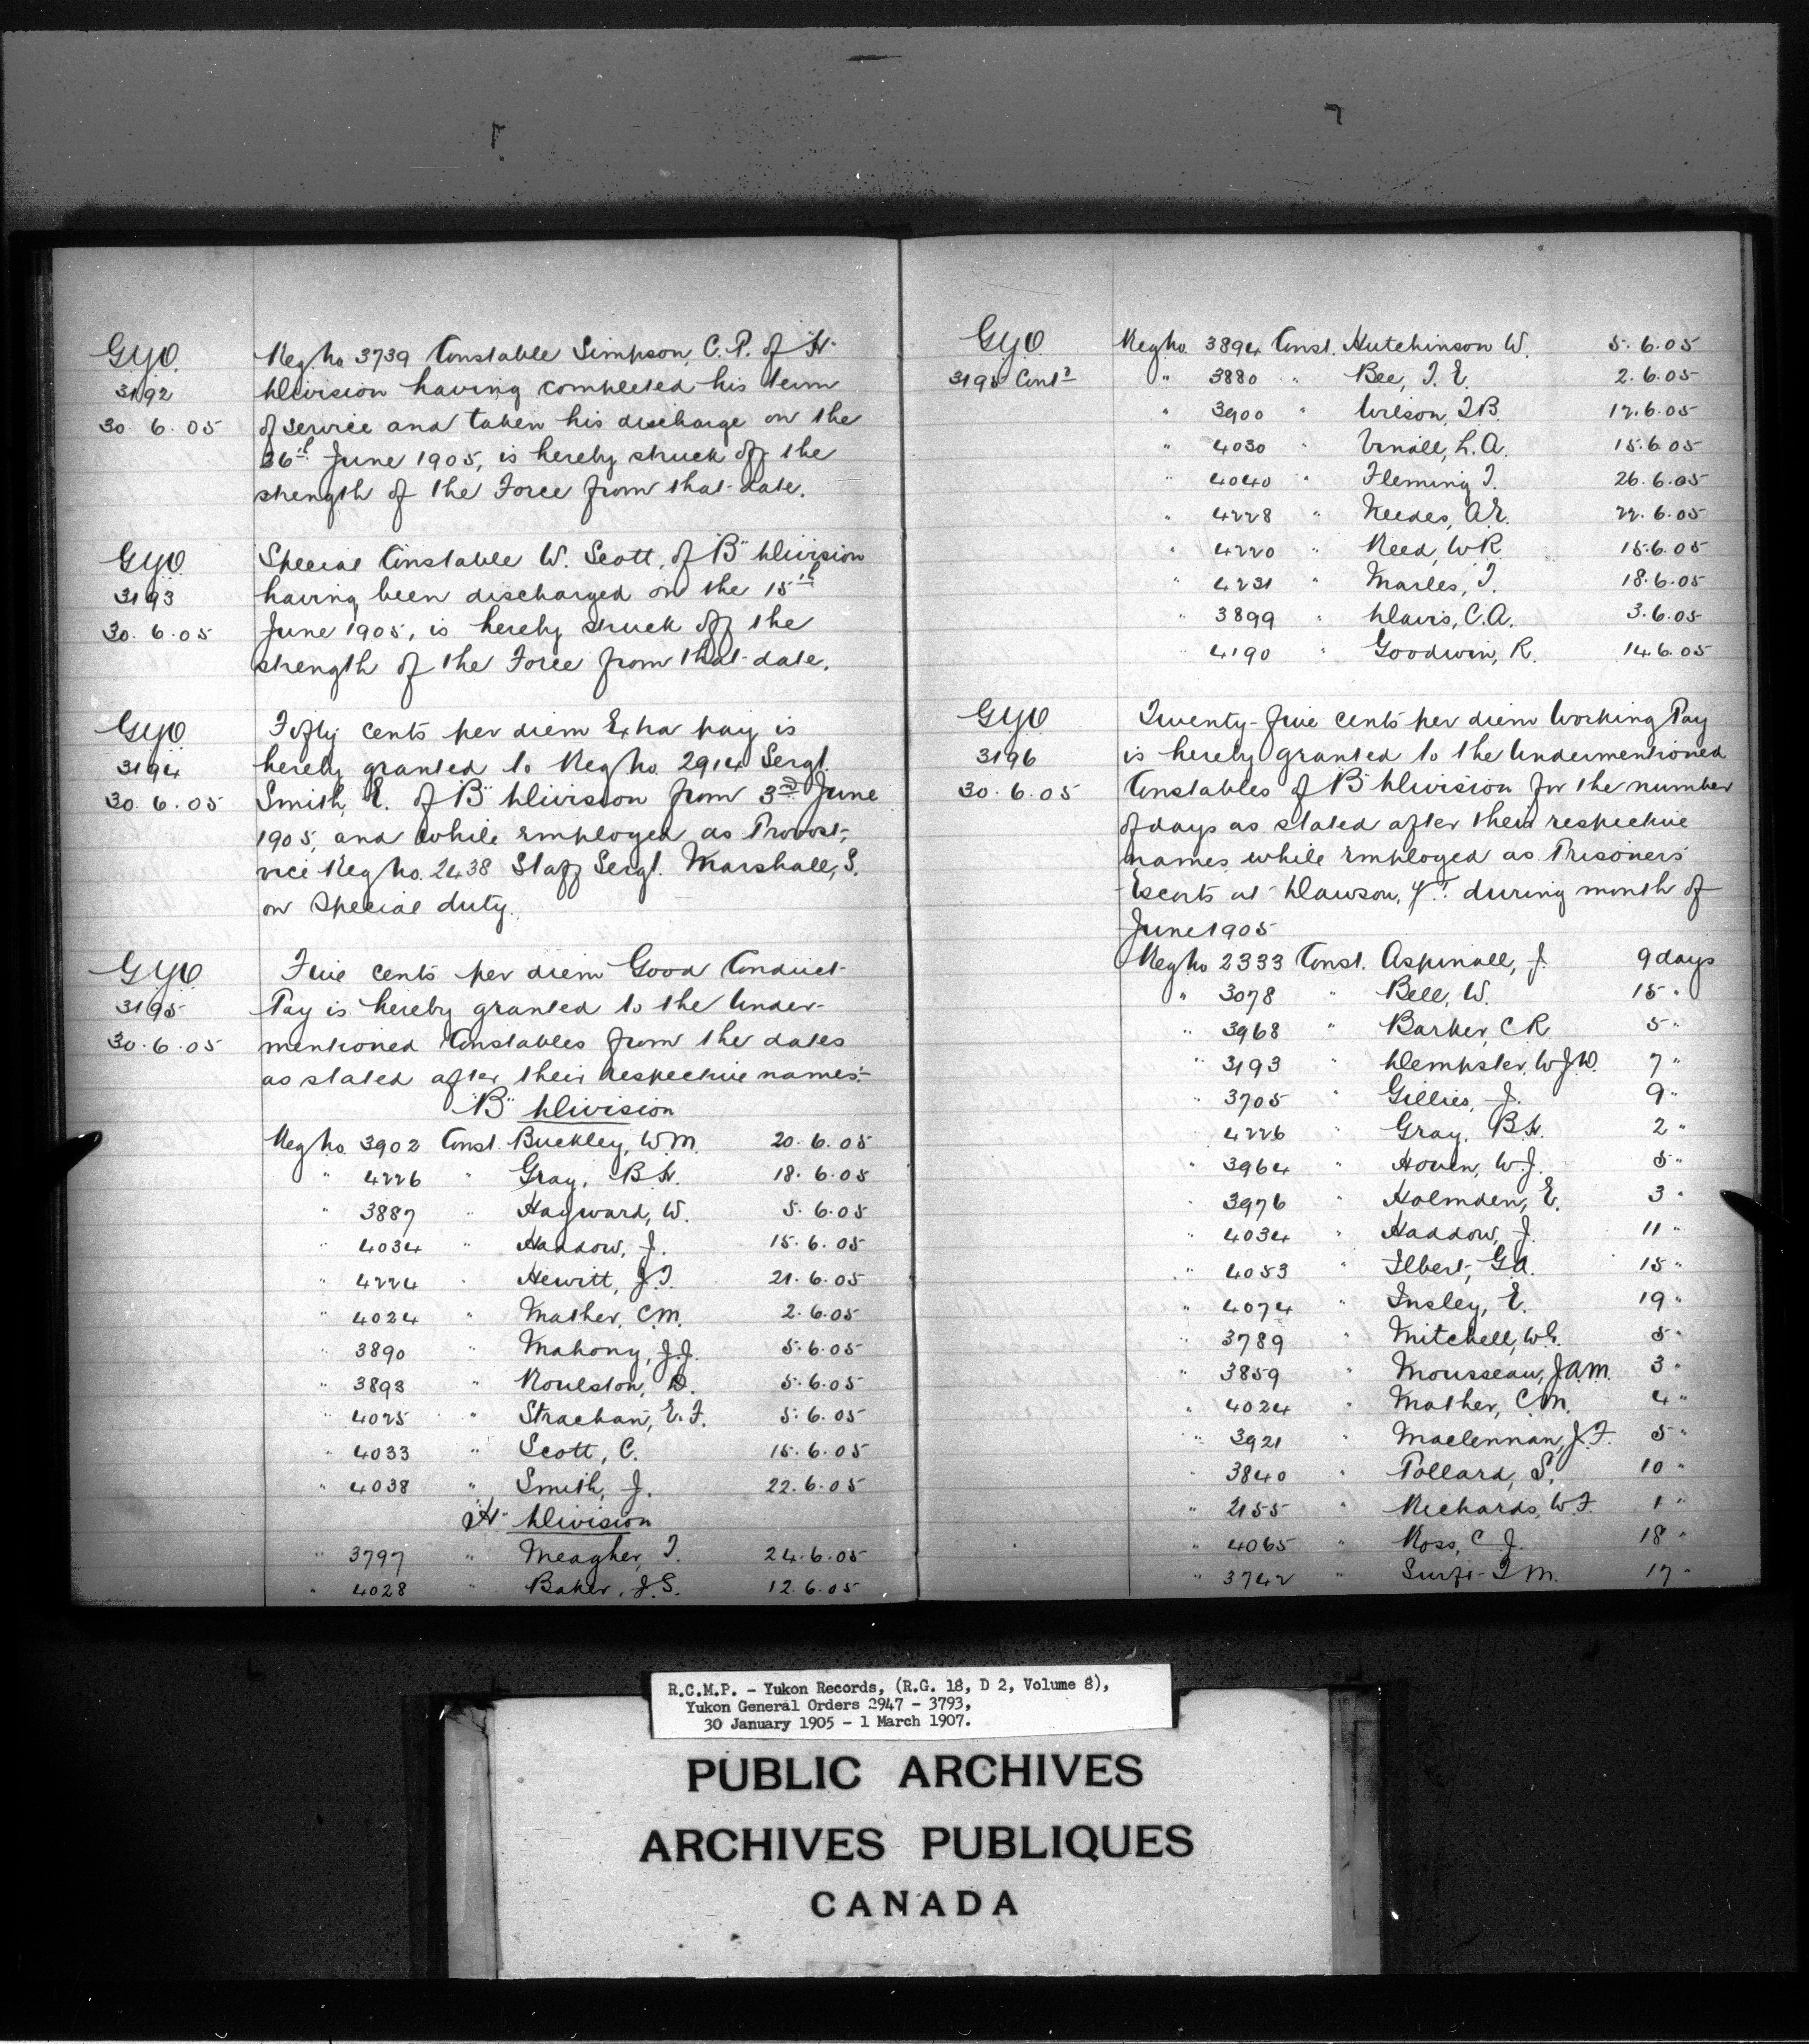 GYO
3192
30.6.05
Reg No 3739 Constable Simpson, C.P. of "H"
Division having completed his term
of service and taken his discharge on the
26th June 1905, is hereby struck off the
strength of the Force from that date.
GYO
3193
30.6.05
Special Constable W. Scott, of "B" Division
having been discharged on the 15th
June 1905, is hereby struck off the
strength of the Force from that date.
GYO
3194
30.6.05
Fifty cents per diem Extra pay is
hereby granted to Reg No. 2914 Sergt.
Smith, E. of "B" Division from 3rd June
1905, and while employed as Provost,
vice Reg No. 2438 Staff Sergt. Marshall, S.
on special duty.
GYO
3195
30.6.05
Five cents per diem Good Conduct
Pay is hereby granted to the Under-
mentioned Constables from the dates
as stated after their respective names:-
"B" Division
Reg No. 3902 Const. Buckley, W.M. 20.6.05
" 4226 " Gray, B.H. 18.6.05
" 3887 " Hayward, W. 5.6.05
" 4034 " Haddow, J. 15.6.05
" 4224 " Hewitt, J.T. 21.6.05
" 4024 " Mather, C.M. 2.6.05
" 3890 " Mahony, J.J. 5.6.05
" 3893 " Roulston, 5.6.05
" 4025 " Strachan, E.F. 5.6.05
" 4033 " Scott, C. 15.6.05
" 4038 " Smith, J. 22.6.05
"H" Division
" 3797 " Meagher, T. 24.6.05
" 4028 " Baker, J.S. 12.6.05
GYO
3195 Contd
Reg No. 3894 Const. Hutchinson W. 5.6.05
" 3880 " Bee, T.E. 2.6.05
" 3900 " Wilson, T.B. 12.6.05
" 4030 " Vinall, L.A. 15.6.05
" 4040 " Fleming T. 26.6.05
" 4228 " Needes, A.E. 22.6.05
" 4220 " Reed, W.R. 15.6.05
" 4231 " Marles, T. 18.6.05
" 3899 " Davis, C.A. 3.6.05
" 4190 " Goodwin, R. 14.6.05
GYO
3196
30.6.05
Twenty-five cents per diem Working Pay
is hereby granted to the Undermentioned
Constables of "B" Division for the number
of days as stated after their respective
names while employed as Prisoners'
Escorts at Dawson, Y.T. during month of
June 1905
Reg No 2333 Const. Aspinall, J. 9 days
" 3078 " Bell, W. 15 "
" 3968 " Barker, C.R. 5 "
" 3193 " Dempster, W.J.D. 7 "
" 3705 " Gillies, J. 9 "
" 4226 " Gray, B.H. 2 "
" 3964 " Hoven, W.J. 5 "
" 3976 " Holmden, E. 3 "
" 4034 " Haddow, J. 11 "
" 4053 " Ilbert, G.A. 15 "
" 4074 " Insley, E. 19 "
" 3789 " Mitchell, 5 "
" 3859 " Mousseau, J.A.M. 3 "
" 4024 " Mather, C.M. 4 "
" 3921 " Maclennan, J.F. 5 "
" 3840 " Pollard, S. 10 "
" 2155 " Richards, W.F. 1 "
" 4065 " Ross, C.J. 18 "
" 3742 " T.M. 17 "
R.C.M.P. - Yukon Records, (R.G. 18, D 2, Volume 8),
Yukon General Orders 2947 - 3793,
30 January 1905 - 1 March 1907.
PUBLIC ARCHIVES
ARCHIVES PUBLIQUES
CANADA